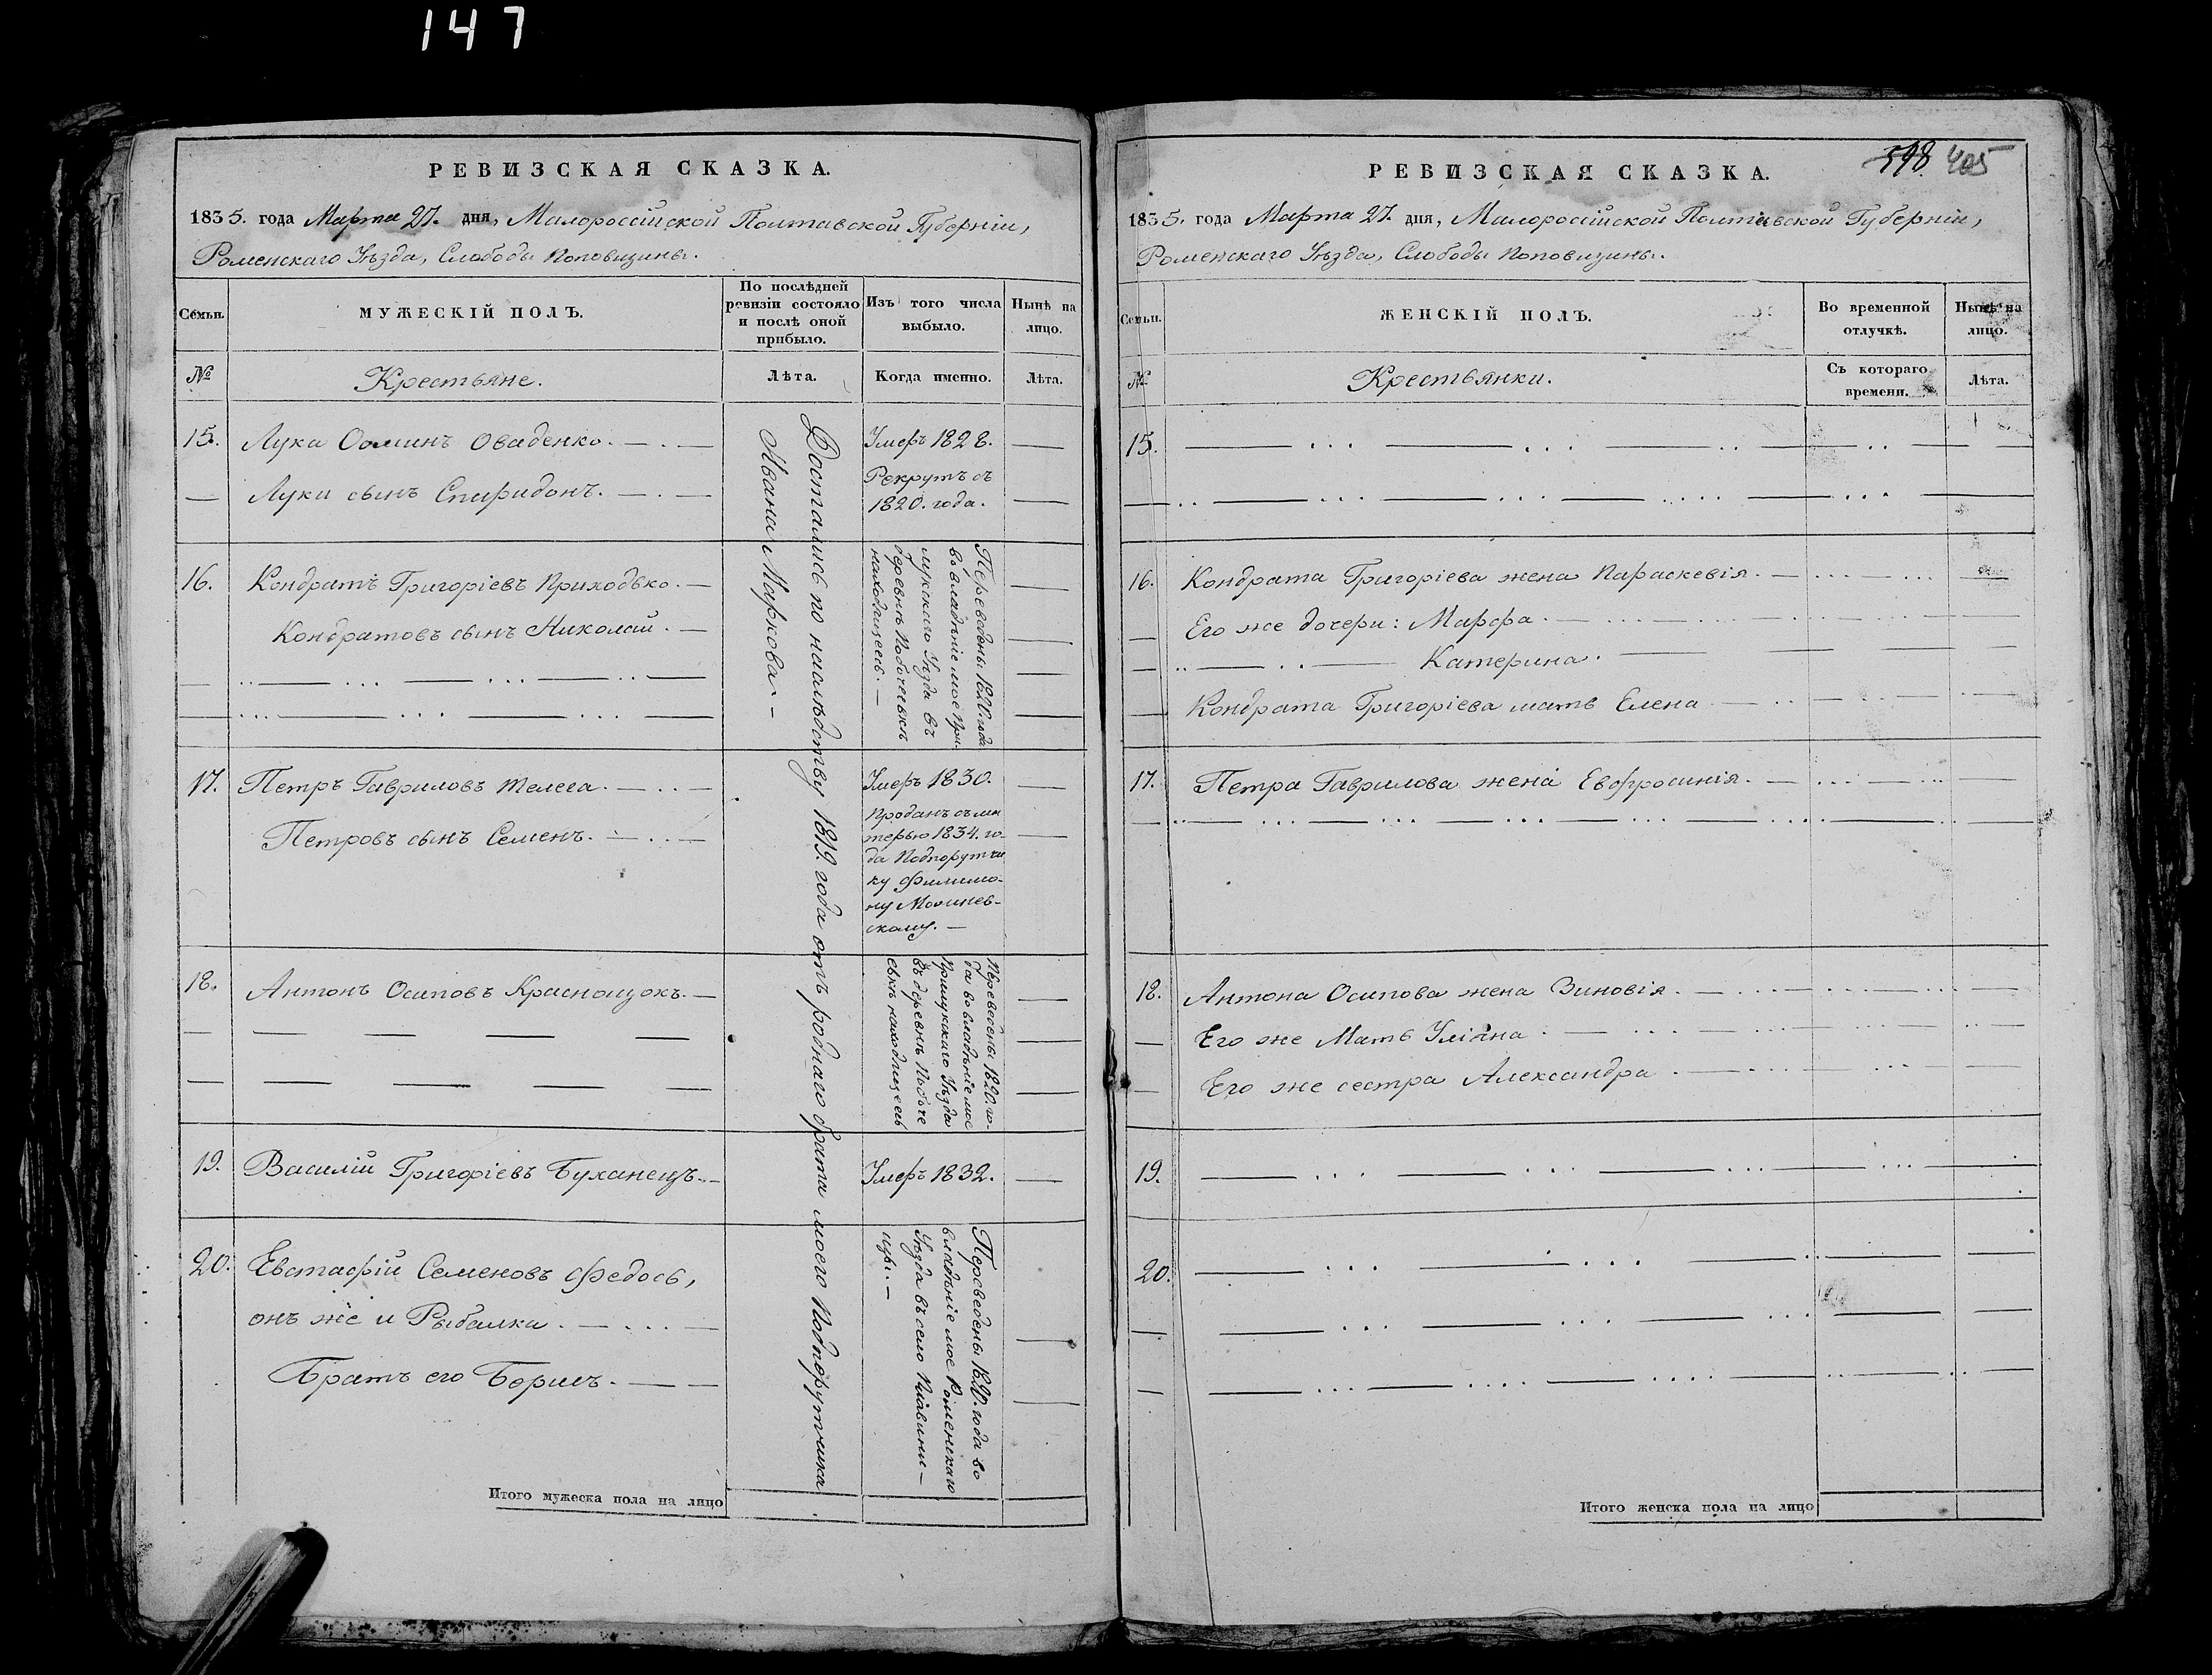 147
РЕВИЗСКАЯ СКАЗКА.
1835. года Марта 27. дня, Малороссійской Полтавской Губерніи,
Роменскаго Уѣзда, Слободы Поповщины.
Семьи.
МУЖЕСКІЙ ПОЛЪ.
По послѣдней
ревизіи состояло
и послѣ оной
прибыло.
Изъ того числа
выбыло.
Нынѣ на
лицо.
№
Крестьяне.
Лѣта.
Когда именно.
Лѣта.
Достались по наслѣдству 1819. года отъ роднаго брата моего Подпорутчика
Ивана Маркова. —
15. Лука Фоминъ Оваденко.
Умеръ 1828.
Луки сынъ Спиридонъ.
Рекрутъ съ
1820. года.
16. Кондратъ Григоріевъ Приходько.
Кондратовъ сынъ Николай.
Переведены 1820 года
во владѣніе мое При-
лукскаго Уѣзда въ
деревнѣ
находящееся. —
17. Петръ Гавриловъ Телега.
Умеръ 1830.
Петровъ сынъ Семенъ.
Проданъ съ ма
терью 1834. го-
да Подпорутчи
ку Филимо-
ну
скому. —
18. Антонъ Осиповъ Краснощокъ.
Переведены 1820. го-
да во владѣніе мое
Прилукскаго Уѣзда
въ деревнѣ
находящееся
19. Василій Григоріевъ Буханецъ.
Умеръ 1832.
20. Евстафій Семеновъ Федось,
онъ же и Рыбалка.
Братъ его Борисъ.
Переведены 1820. года во
владѣніе мое Роменскаго
Уѣзда въ село Плавини-
щы. —
Итого мужеска пола на лицо
598 405
РЕВИЗСКАЯ СКАЗКА.
1835. года Марта 27. дня, Малороссійской Полтавской Губерніи,
Роменскаго Уѣзда, Слободы Поповщины.
Семьи.
ЖЕНСКІЙ ПОЛЪ.
Во временной
отлучкѣ.
Нынѣ на
лицо.
№
Крестьянки.
Съ котораго
времени.
Лѣта.
15.
16. Кондрата Григоріева жена Параскевія.
Его же дочери: Марфа.
Катерина.
Кондрата Григоріева мать Елена
17. Петра Гаврилова жена Евфросинія.
18. Антона Осипова жена Зиновія.
Его же Мать Уліяна
Его же сестра Александра
19.
20.
Итого женска пола на лицо